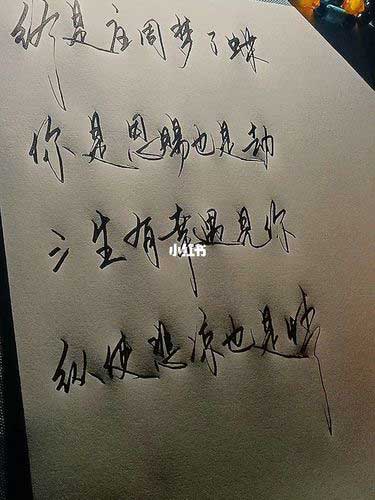 终是庄周梦了蝶
你是恩赐也是劫
三生有幸遇见你
小红书
纵使悲凉也是情